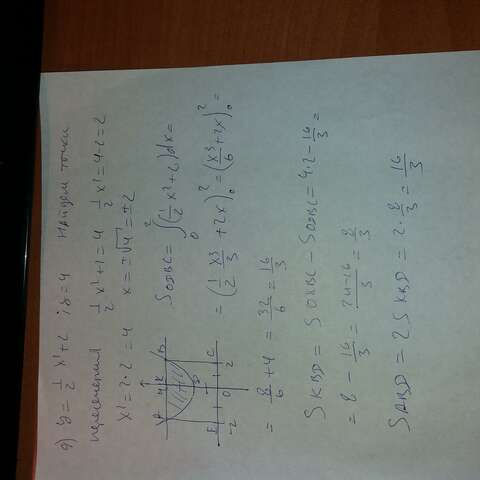 а) y = 1/2 x² + 2 ; y = 4 Найдем точки
пересечения 1/2 x² + 2 = 4 1/2 x² = 4 - 2 = 2
x² = 2 · 2 = 4 x = ± √4 = ± 2
S OДBC = ∫₀² (1/2 x² + 2) dx =
= (1/2 x³/3 + 2x)₀² = (x³/6 + 2x)₀² =
-2 0 2
= 8/6 + 4 = 32/6 = 16/3
S KBD = S OKBC - S OДBC = 4·2 - 16/3 =
= 8 - 16/3 = 24-16/3 = 8/3
S ABD = 2 S KBD = 2 · 8/3 = 16/3